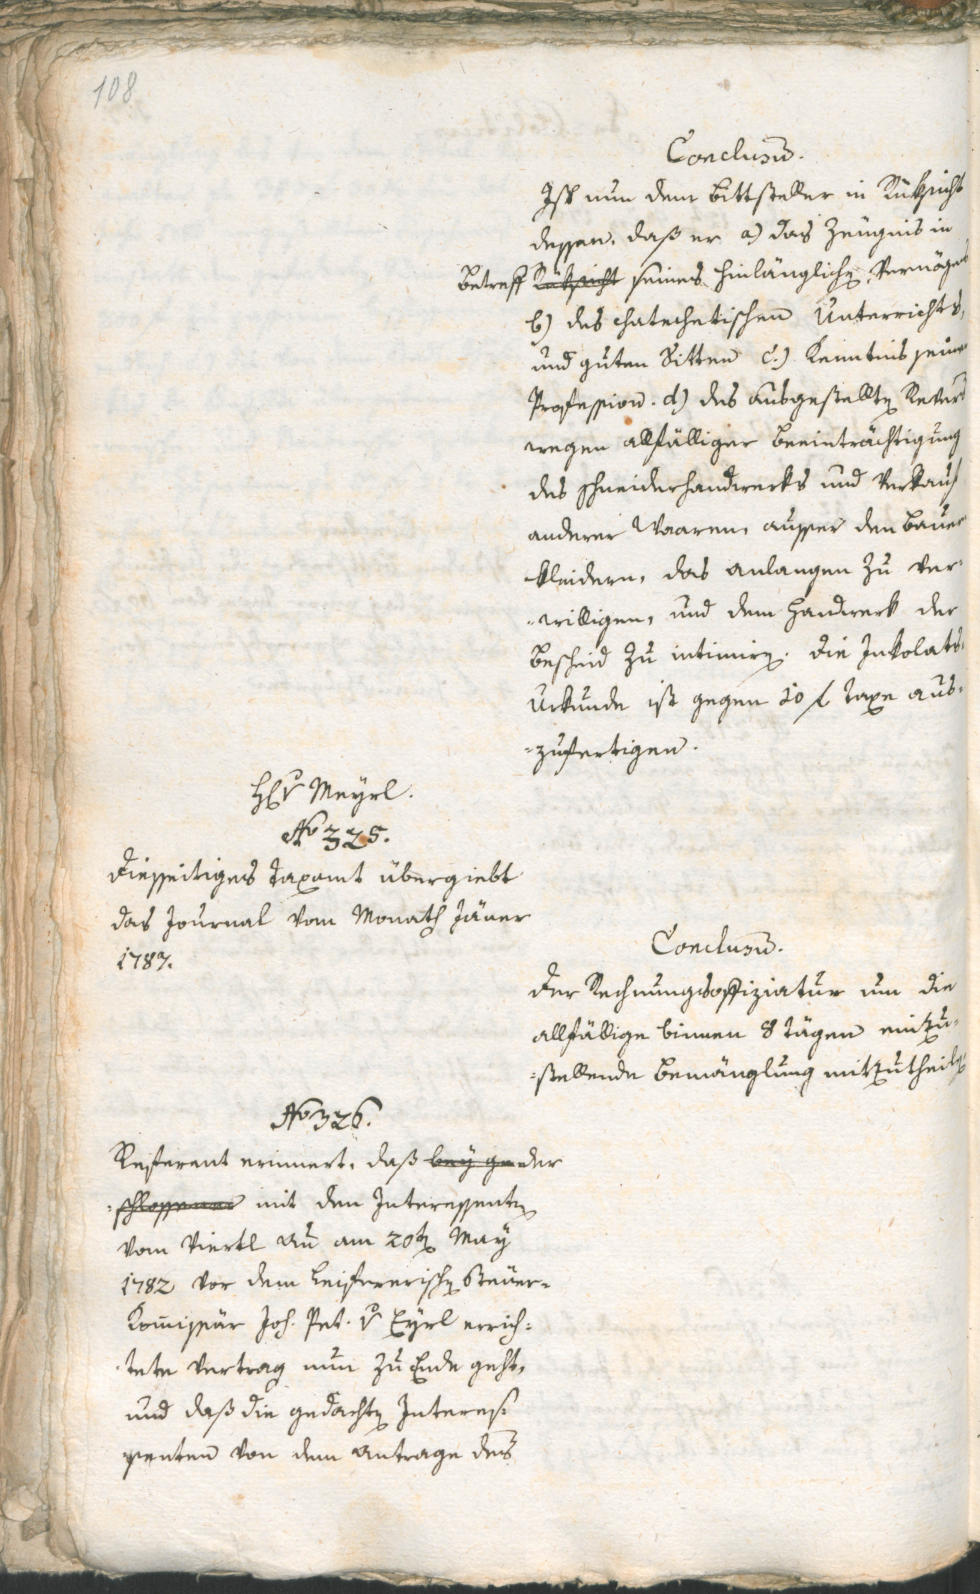 108
Conclusum.
Ist nun dem Bittsteller in Rüksicht
dessen, daß er a) das Zeugnis in
Betreff Rüksicht seines hinlänglichen Vermögens
b) des chatechetischen Unterrichts,
und guten Sitten c.) Kenntnis seiner
Profession. d) des ausgestellten Revers
wegen allfälliger Beeinträchtigung
des Schneiderhandwerks und Verkauf
anderer Waaren, ausser den Bauern
kleidern, das Anlangen zu ver-
-willigen, und dem Handwerk der
Bescheid zu intimiren. Die Inkolats-
Urkunde ist gegen 10 f Taxe aus-
-zufertigen.
H v Meyrl.
No 325.
Diesseitiges Taxamt übergiebt
das Journal vom Monath Jäner
1787.
Conclusum.
Der Rechnungsoffiziatur um die
allfällige binnen 8 Tägen einzu-
-stellende Bemänglung mitzutheilen
No 326.
Referent erinnert, daß bey ge der
-schlossener mit den Interessenten
vom Viertl Au am 20ten May
1782 vor dem Steüer-
Kommissär Joh. Pet. v Eyrl errich-
-tete Vertrag nun zu Ende geht,
und daß die gedachten Interes-
senten von dem Antrage des